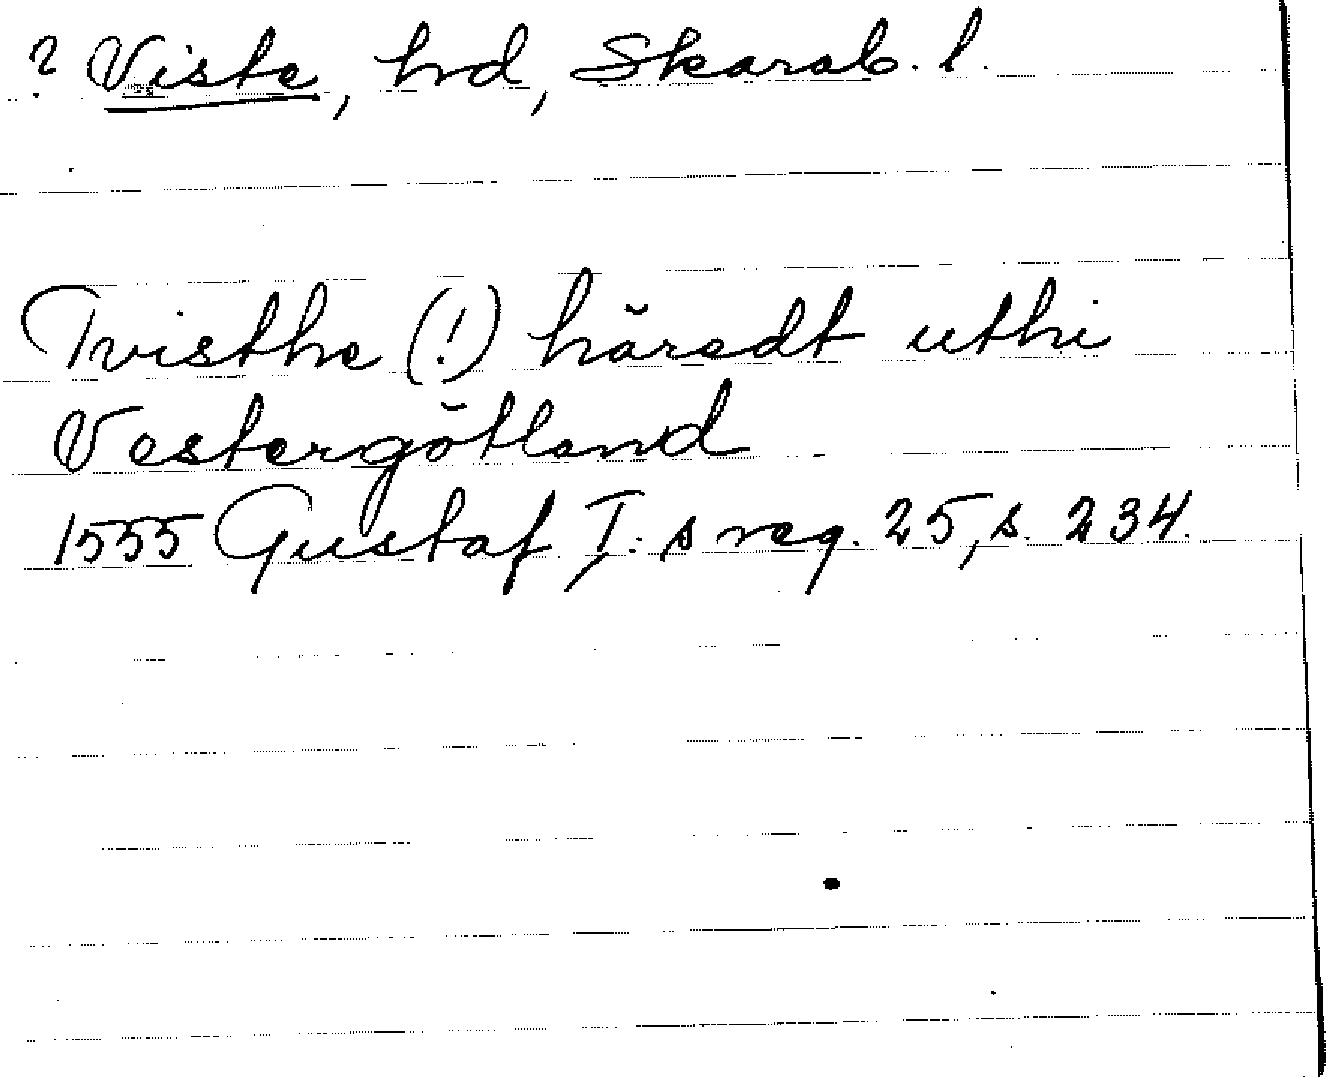 ? Viste, hd, Skarab. l.
Tvisthe (!) häredt uthi
Vestergötland
1555 Gustaf I:s reg. 25, s. 234.